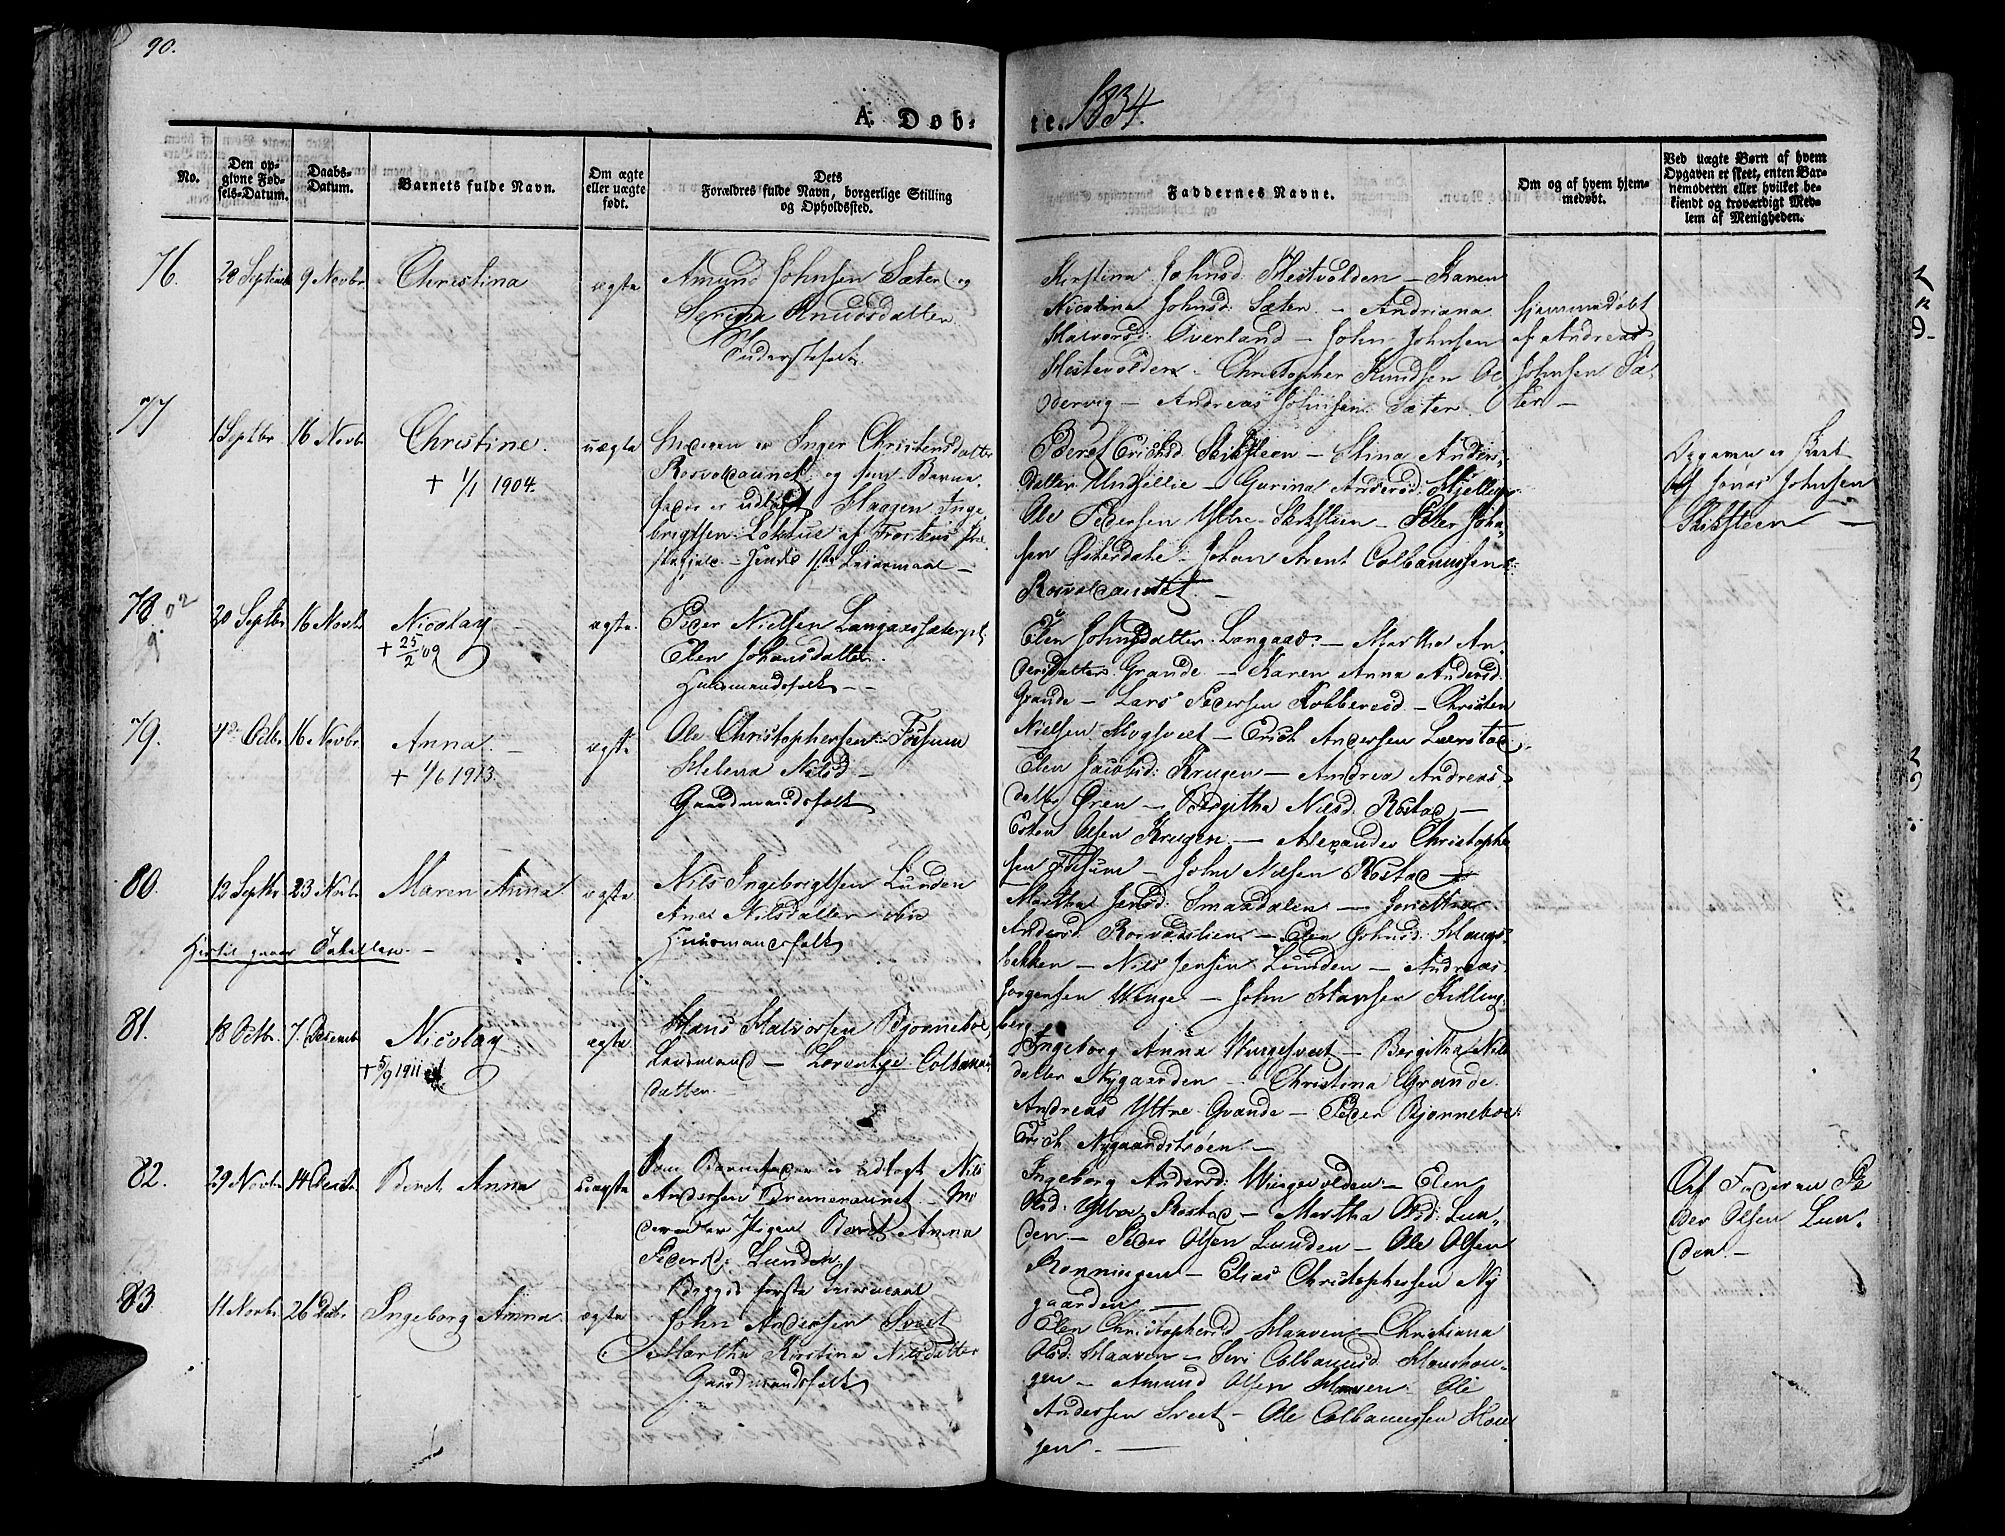 90.
A. Døb-
te. 1834.
No.
Den op-
givne Fød-
sels-Datum.
Daabs-
Datum.
Barnets fulde Navn.
Om ægte
eller uægte
født.
Dets
Forældres fulde Navn, borgerlige Stilling
og Opholdssted.
Faddernes Navne.
Om og af hvem hjem-
medøbt.
Ved uægte Børn af hvem
Opgaven er skeet, enten Bar-
nemoderen eller hvilket be-
kiendt og troværdigt Med-
lem af Menigheden.
76.
20 Septembr
9 Novbr
Christina
ægte
Amund Johnsen Sæter og
Serina Knudsdatter
Inderstefolk
Kirstina Johnsd. Hestvolden – Karen
Nicolina Johnsd. Sæter – Andriana
Halvorsd: Overland – John Johnsen
Hestevolden – Christopher Knudsen
– Andreas Johnsen Sæter
hjemmedøbt
af Andreas
Johnsen Sæ-
ter –
77
1 Septbr
16 Novbr
Christine.
+ 1/1 1904.
uægte
Moderen er Inger Christensdatter
og som Barne-
fader er udlagt Haagen Inge-
brigtsen af Frostens Præ-
stegjeld – 1ste Leiermaal –
Beret Erichsd Skiksteen – Stina Anders-
datter – Gurina Andersd:
Ole Pedersen Yttre Skiksteen – Peter Joha-
sen Østerdahl – Johan Arent Colbanussen
Opgaven er skeet
af Jonas Johnsen
Skiksteen –
78
02
9
20 Septbr
16 Novbr
Nicolay
+ 25/2 09
ægte.
Peder Nielsen Langaassæter
Elen Johansdatter.
Huusmandsfolk – –
Elen Johnsdatter Langaas – Martha An-
dersdatter Grande – Karen Anna Andersd
Grande – Lars Pedersen – Christen
Nielsen Mogsveet – Erich Andersen
79.
4de Octbr
16 Novbr
Anna. –
+ 1/6 1913.
ægte
Ole Christophersen Fossum
Helena Nilsd –
Gaardmandsfolk
Elen Jacobsd: Krugen – Andrea Andreas-
datter Øren – Bergitha Nilsd. Rostad –
Esten Olsen Krugen – Alexander Christopher
sen Fossum – John Nilsen Rostad –
80.
12 Septbr
23 Novbr
Maren Anna
ægte
Nils Ingebrigtsen Lunden
Ane Nilsdatter ibid
Huusmandsfolk
Hertil gaar Tabellen. –
Martha Jensd: Smaadalen –
Andersd. – Elen Johnsd: Haugs-
bekken – Nils Jensen Lunden – Andreas
Jørgensen Winge – John Hansen Killing-
berg
81.
18 Octbr.
7. Decembr
Nicolay
+ 5/9 1911
ægte.
Hans Halvorsen Bjonneboe,
Landmand – Lorentze Colbanus
datter. –
Ingeborg Anna Wingesveet – Bergitha Nils
datter Nygaarden – Christina Grande.
Andreas Yttre Grande – Peder Bjonneboe:
Erich Nygaardstrøen. –
82.
29 Novbr
14 Decbr
Beret Anna
uægte
Som Barnefader er udlagt Nils
Andersen – Mo
deren er Pigen Beret Anna
Pedersd: Lunden
Begges første Leiermaal
Ingeborg Andersd: Wingesvolden – Elen
Olsd: Rostad – Martha Olsd: Lun-
den – Peder Olsen Lunden – Ole Olsen
Ronningen – Elias Christophersen Ny
gaarden. –
Af Faderen Pe
der Olsen Lun-
den. –
83.
11 Novbr
26 Decbr.
Ingeborg Anna
ægte
John Andersen Sveet
Martha Kirstina Nilsdatter
Gaardmandsfolk
Elen Christophersd Haaven – Christiana
Olsd: Haaven – Seri Colbanusd. Houshou-
gen – Amund Olsen Haaven Ole
Andersen Sveet – Ole Colbanussen Hou
gen. –